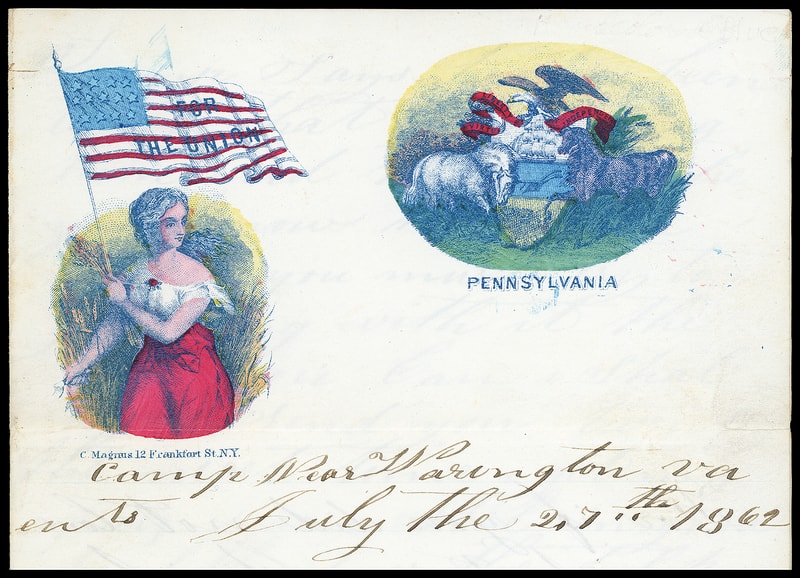 FOR
THE UNION
PENNSYLVANIA
C. Magnus 12 Frankfort St. N.Y.
Camp Near Warington va
ents July the 27th 1862